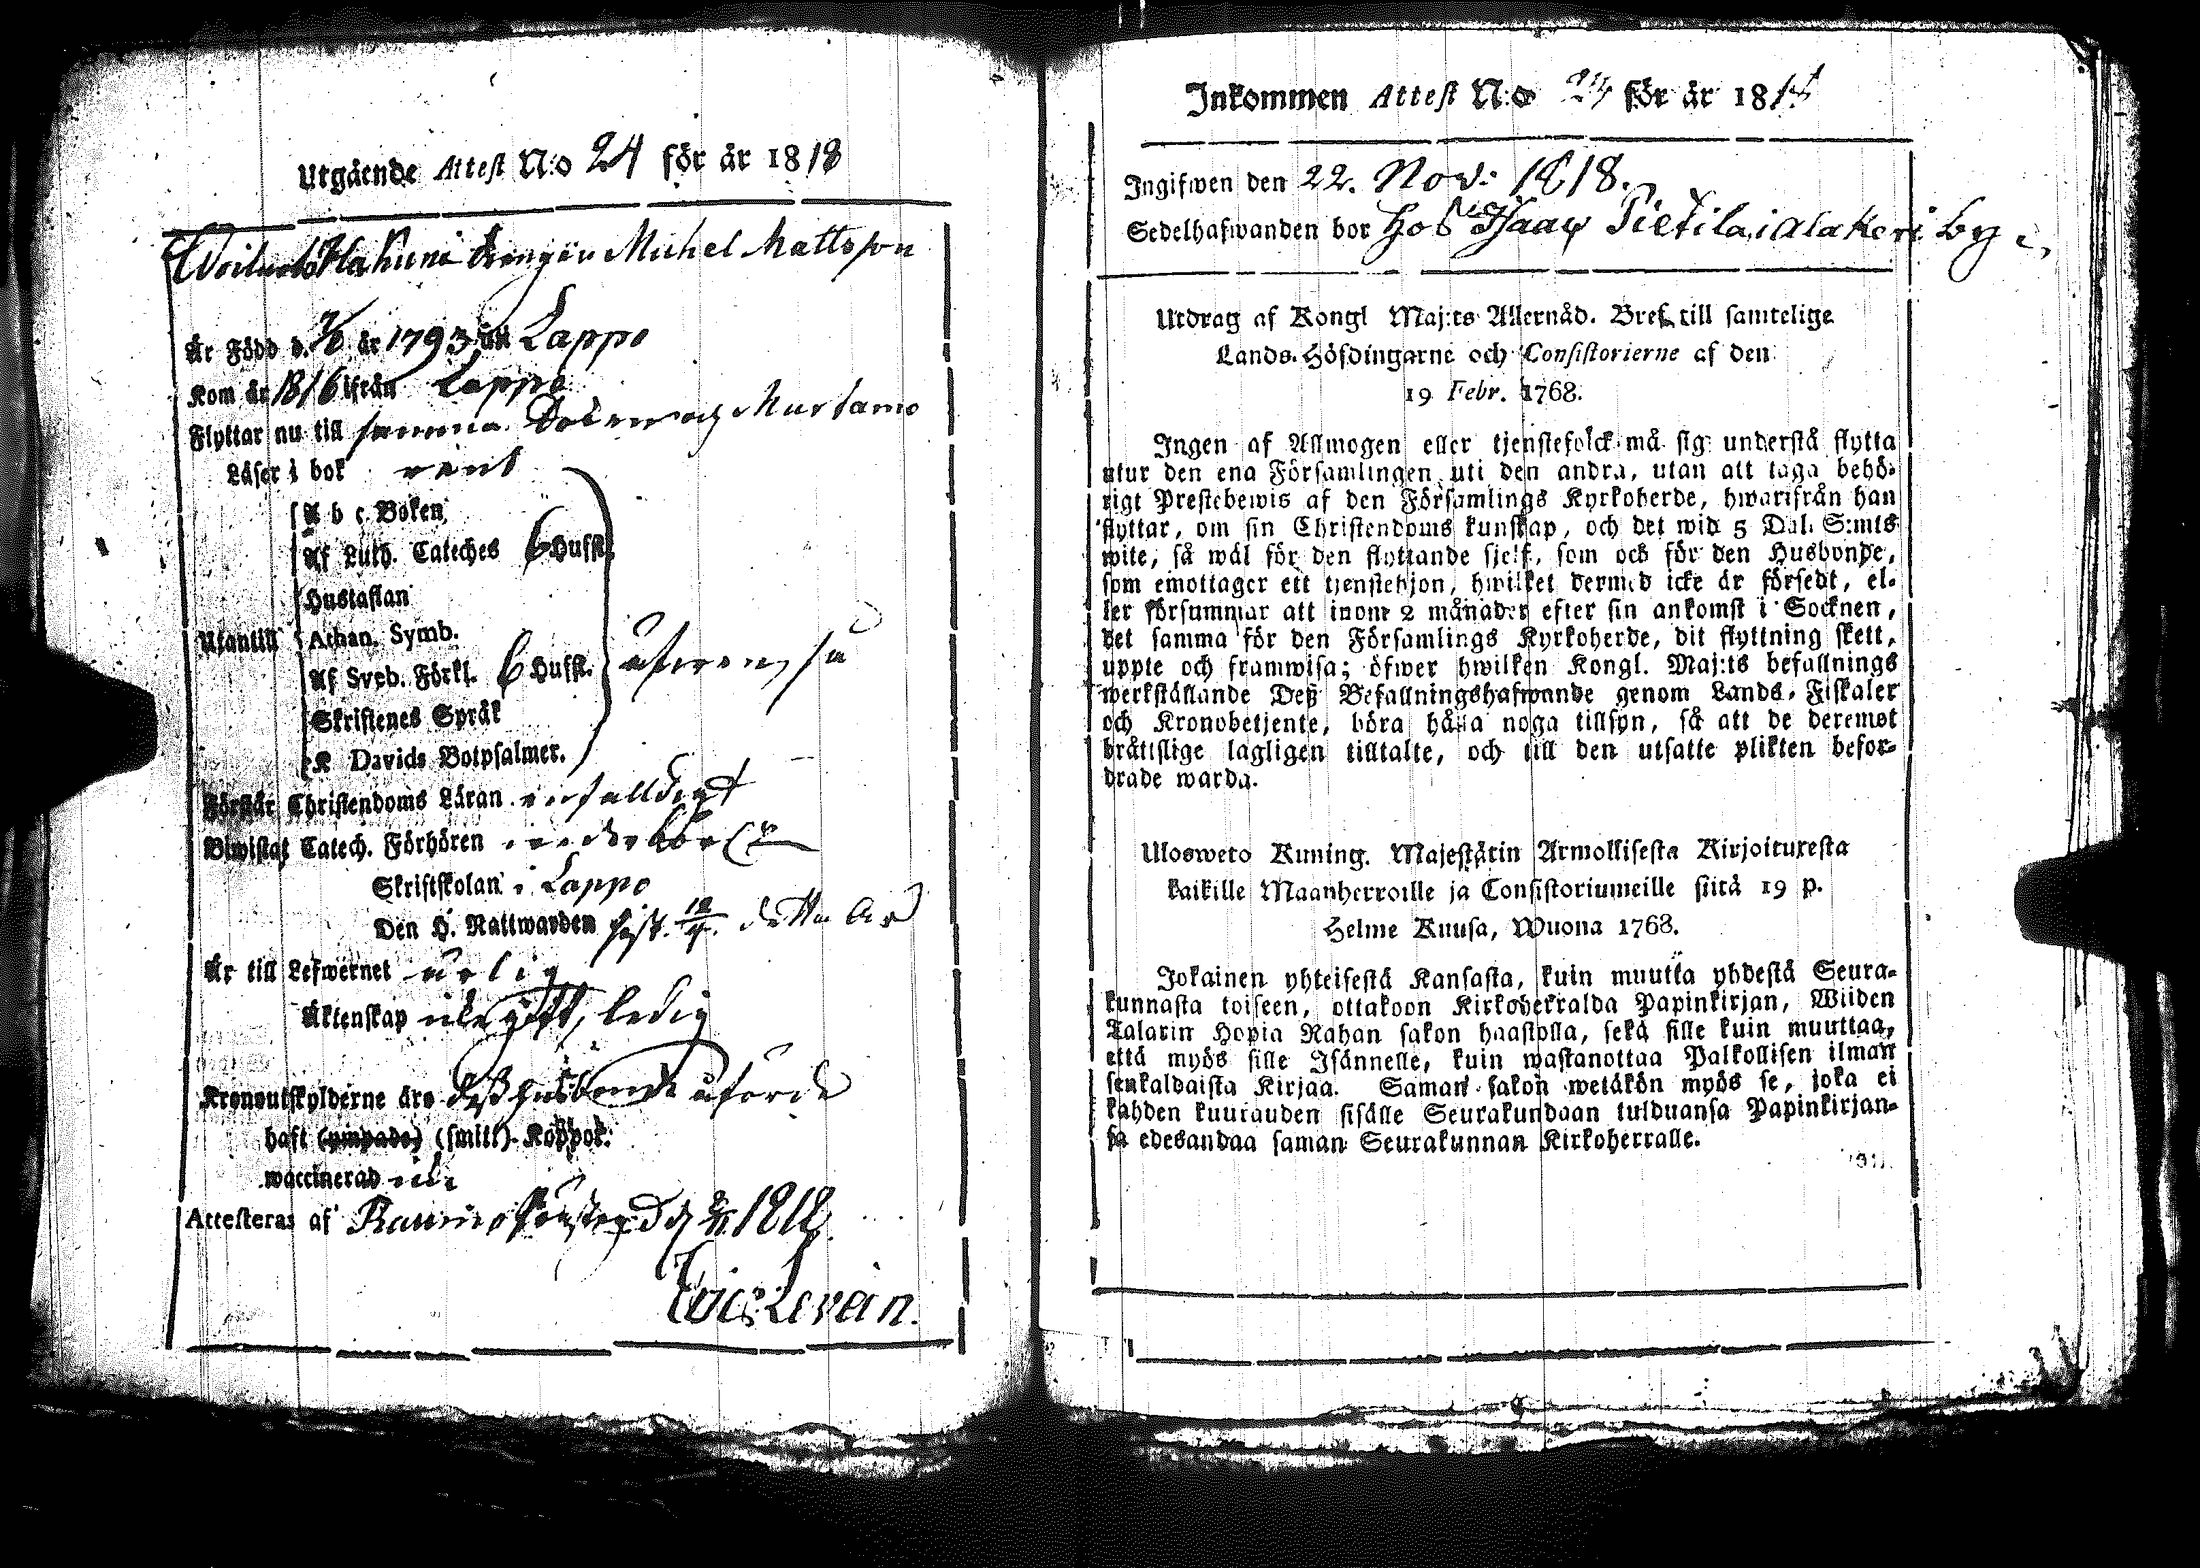 Utgående Attest N:o 24 för år 1818
drengen Michel Mattsson
Är Född d. år 1793 uti Lappo
Kom år 1816 ifrån Lappo
Flyttar nu till samma Murtamo
Läser i bok rent
A b c Boken
Af Luth. Cateches 6 Hufst.
Hustaflan
Utantill Athan. Symb.
Af Sveb. Förkl. 6 Hufst.
Skriftenes Språk
K Davids Botpsalmer.
Förstår Christendoms Läran enfalldigt
Biwistat Catech. Förhören
Skriftskolan i Lappo
Den H. Nattwarden sist. detta år
Är till Lefwernet ärlig
Äktenskap icke gift, ledig
Kronoutskylderne äro påförde
haft (ympade) (smitt) Koppor.
waccinerad icke
Attesteras af 1818.
Levein.
Inkommen Attest N:o 24 för år 18
Ingifwen den 22. Nov: 1818.
Sedelhafwanden bor Hos Pietila i alakeri by
Utdrag af Kongl Maj:ts Allernåd. Bref till samtelige
Lands-Höfdingarne och Consistorierne af den
19 Febr. 1768.
Ingen af Allmogen eller tjenstefolck må sig understå flytta
utur den ena Församlingen uti den andra, utan att taga behö-
rigt Prestebewis af den Församlings Kyrkoherde, hwarifrån han
flyttar, om sin Christendoms kunskap, och det wid 5 Dal. S:mts
wite, så wäl för den flyttande sjelf, som ock för den Husbonde,
som emottager ett tjenstehjon, hwilket dermed icke är försedt, el-
ler försummar att inom 2 månader efter sin ankomst i Socknen,
det samma för den Församlings Kyrkoherde, dit flyttning skett,
uppte och framwisa; öfwer hwilken Kongl. Maj:ts befallnings
werkställande Deß Befallningshafwande genom Lands-Fiskaler
och Kronobetjente, böra hålla noga tillsyn, så att de deremot
bråttslige lagligen tilltalte, och till den utsatte plikten befor-
drade warda.
Ulosweto Kuning. Majestätin Armollisesta Kirjoituxesta
kaikille Maanherroille ja Consistoriumeille siitä 19 p.
Helme Kuusa, Wuona 1768.
Jokainen yhteisestä Kansasta, kuin muutta yhdestä Seura-
kunnasta toiseen, ottakoon Kirkoherralda Papinkirjan, Wiiden
Talarin Hopia Rahan sakon haastolla, sekä sille kuin muuttaa,
että myös sille Isännelle, kuin wastanottaa Palkollisen ilman
senkaldaista Kirjaa. Saman sakon wetäkön myös se, joka ei
kahden kuukauden sisälle Seurakundaan tulduansa Papinkirjan-
sa edesandaa saman Seurakunnan Kirkoherralle.